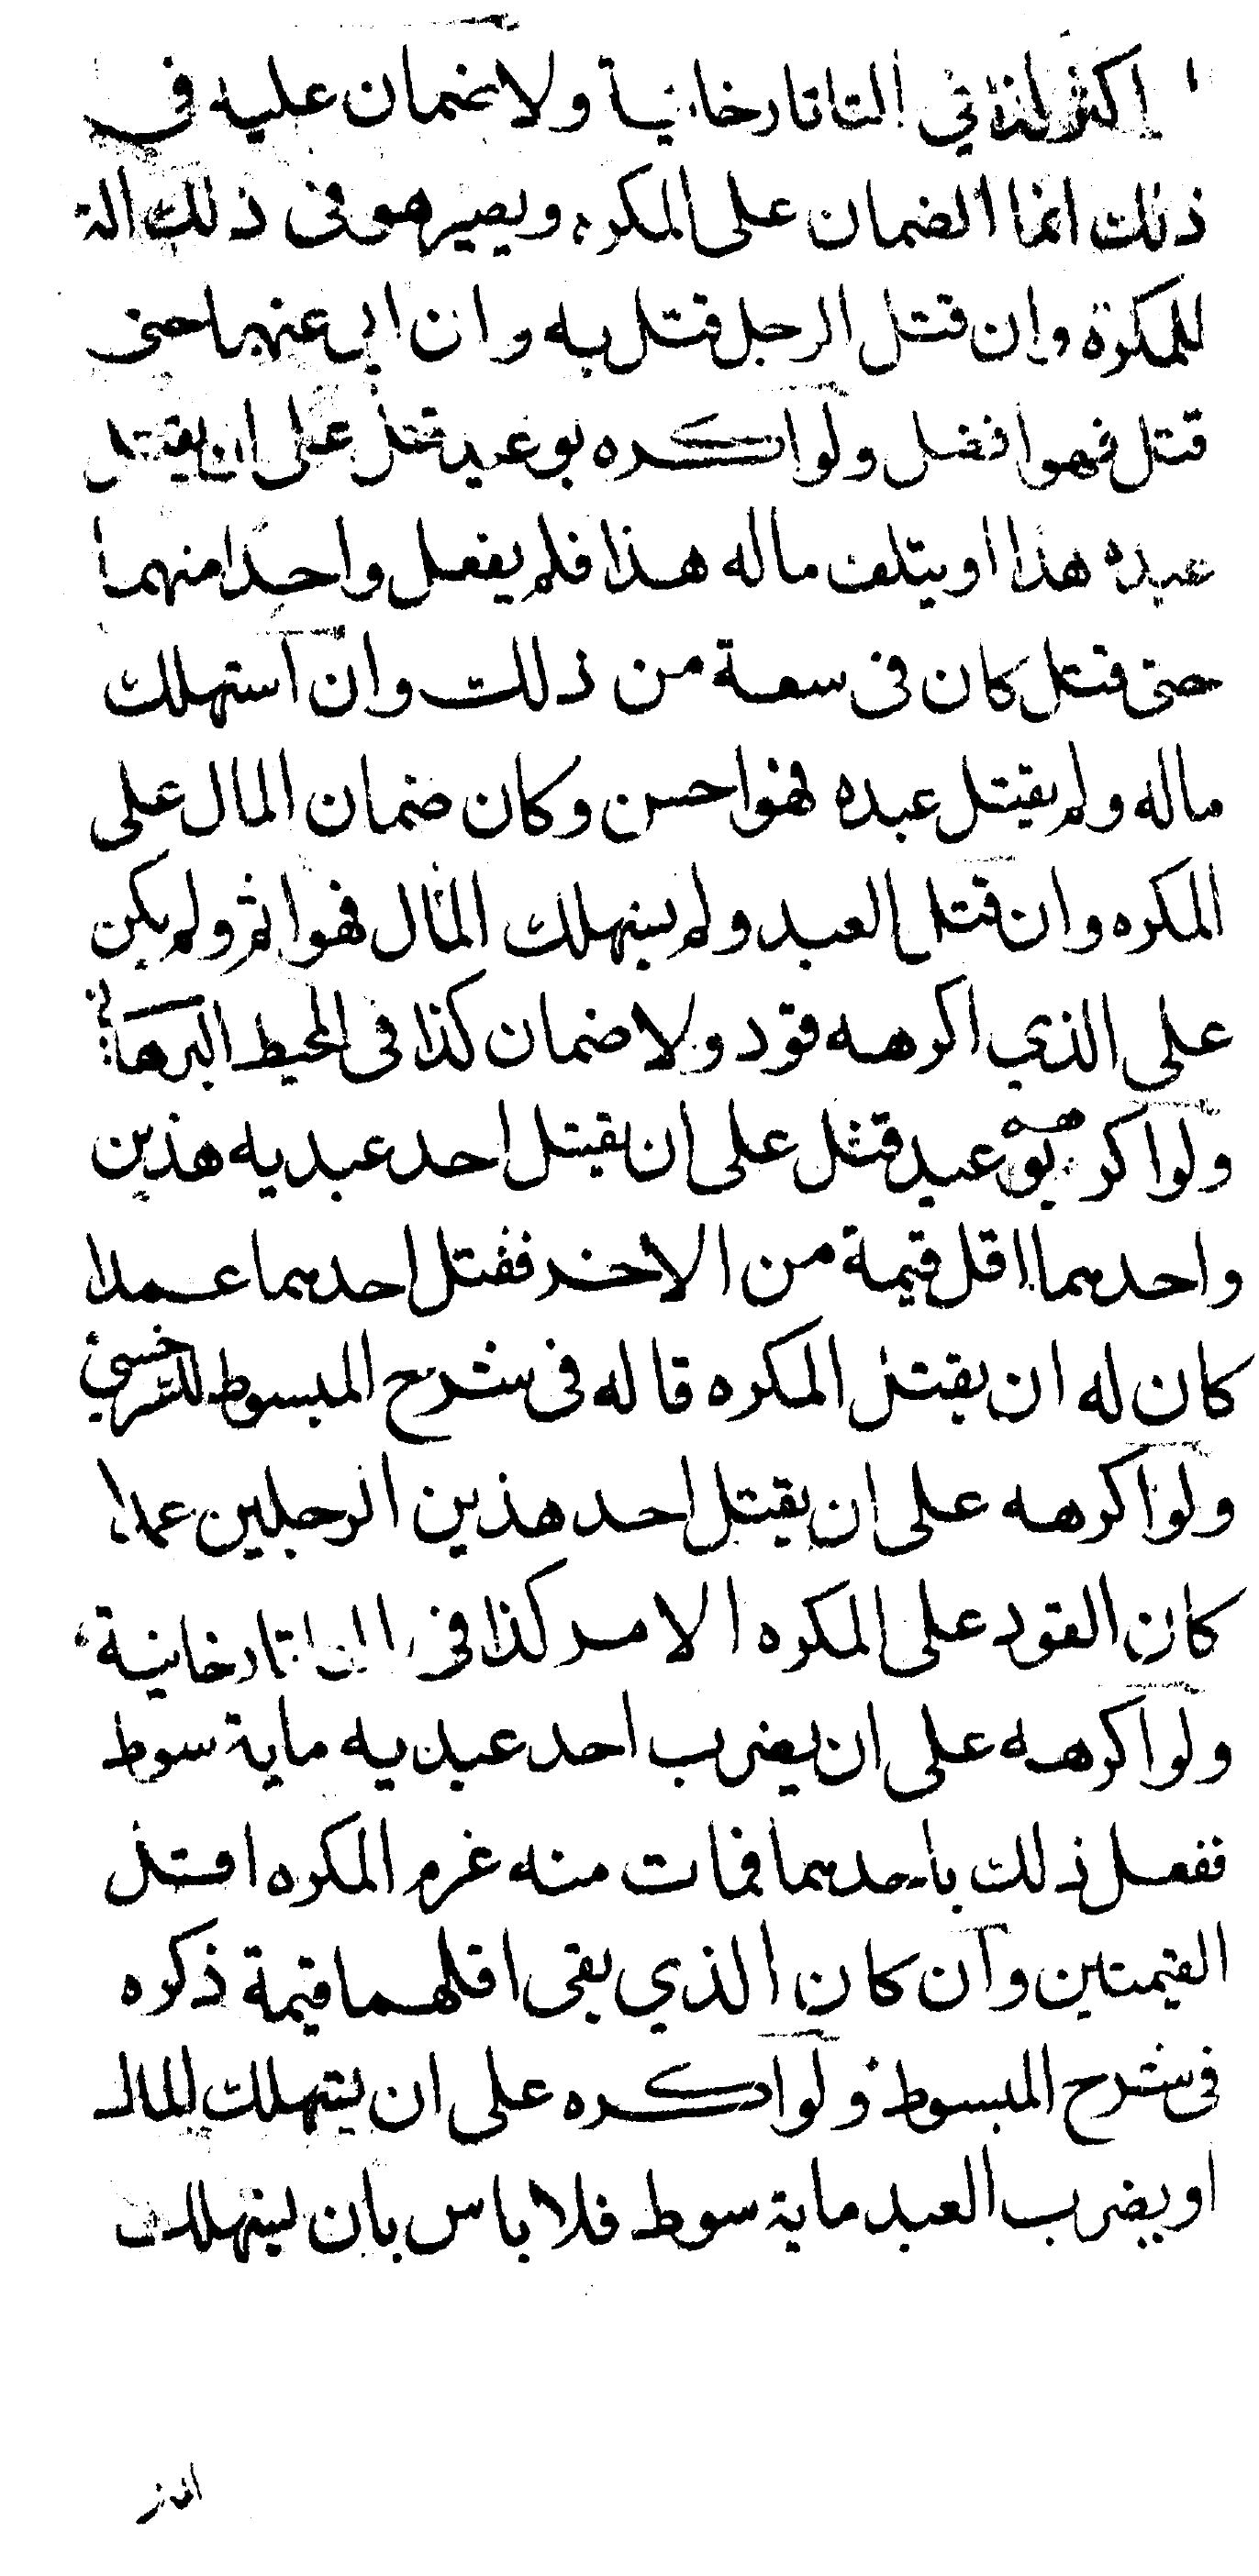 اكثر كذا في التاتارخانية ولا ضمان عليه في
ذلك انما الضمان على المكره ويصير هو في ذلك الة
للمكره وان قتل الرجل قتل به وان ابى عنهما حتى
قتل فهو افضل ولو اكره بوعيد قتل على ان يقتل
عبده هذا او يتلف ماله هذا فلم يفعل واحدا منهما
حتى قتل كان في سعة من ذلك وان استهلك
ماله ولم يقتل عبده فهو احسن وكان ضمان المال على
المكره وان قتل العبد ولم يستهلك المال فهو اثم ولم يكن
على الذي اكرهه قود ولا ضمان كذا في المحيط البرهاني
ولو اكرهه بوعيد قتل على ان يقتل احد عبديه هذين
واحدهما اقل قيمة من الاخر فقتل احدهما عمدا
كان له ان يقتل المكره قاله في شرح المبسوط للسرخسي
ولو اكرهه على ان يقتل احد هذين الرجلين عمدا
كان القود على المكره الامر كذا في التاتارخانية
ولو اكرهه على ان يضرب احد عبديه ماية سوط
ففعل ذلك باحدهما فمات منه غرم المكره اقل
القيمتين وان كان الذي بقى اقلهما قيمة ذكره
في شرح المبسوط ولو اكره على ان يستهلك المال
او يضرب العبد ماية سوط فلا باس بان يستهلك